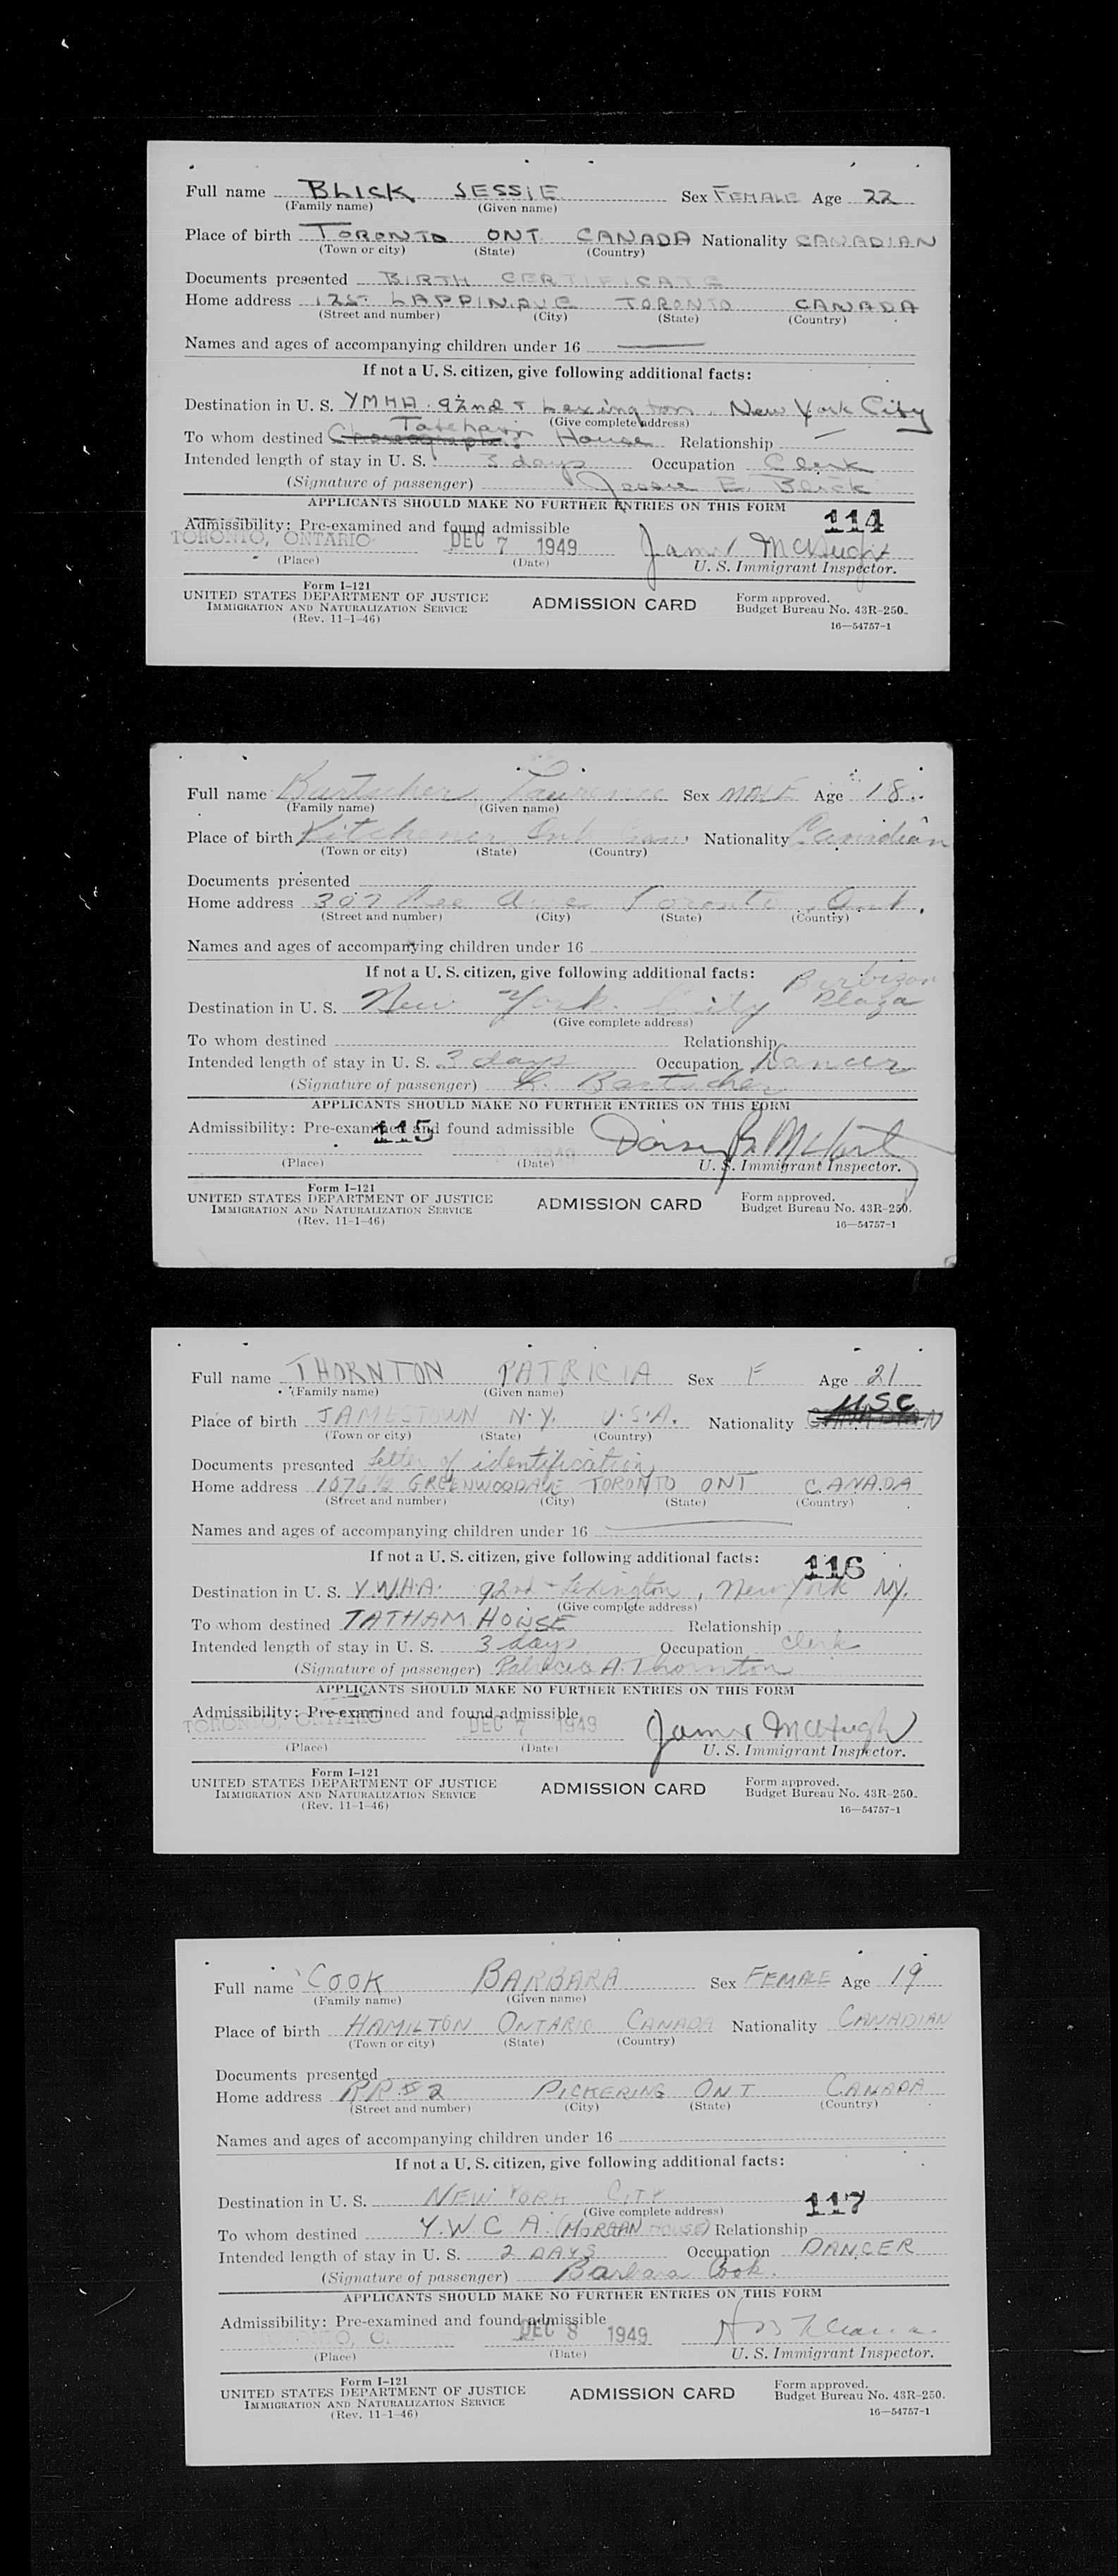 Full name BLICK JESSIE Sex FEMALE Age 22
(Family name) (Given name)
Place of birth TORONTO ONT CANADA Nationality CANADIAN
(Town or city) (State) (Country)
Documents presented BIRTH CERTIFICATE
Home address 125 LAPPIN AVE TORONTO CANADA
(Street and number) (City) (State) (Country)
Names and ages of accompanying children under 16
If not a U. S. citizen, give following additional facts:
Destination in U. S. YMHA 92nd & Lexington, New York City
(Give complete address)
Tatham
To whom destined House Relationship —
Intended length of stay in U. S. 3 days Occupation Clerk
(Signature of passenger) Jessie E. Blick
APPLICANTS SHOULD MAKE NO FURTHER ENTRIES ON THIS FORM
114
Admissibility: Pre-examined and found admissible
TORONTO, ONTARIO DEC 7 1949 James McHugh
(Place) (Date) U. S. Immigrant Inspector.
Form I-121
UNITED STATES DEPARTMENT OF JUSTICE ADMISSION CARD Form approved.
IMMIGRATION AND NATURALIZATION SERVICE Budget Bureau No. 43R-250.
(Rev. 11-1-46) 16—54757-1
Full name Bartscher Laurence Sex MALE Age 18
(Family name) (Given name)
Place of birth Kitchener Ont Can. Nationality Canadian
(Town or city) (State) (Country)
Documents presented
Home address 307 Ave Toronto, Ont.
(Street and number) (City) (State) (Country)
Names and ages of accompanying children under 16
If not a U. S. citizen, give following additional facts: Barbizon
Destination in U. S. New York City Plaza
(Give complete address)
To whom destined Relationship
Intended length of stay in U. S. 3 days Occupation Dancer
(Signature of passenger) L. Bartscher
APPLICANTS SHOULD MAKE NO FURTHER ENTRIES ON THIS FORM
Admissibility: Pre-examined and found admissible
115
1949
(Place) (Date) U. S. Immigrant Inspector.
Form I-121
UNITED STATES DEPARTMENT OF JUSTICE ADMISSION CARD Form approved.
IMMIGRATION AND NATURALIZATION SERVICE Budget Bureau No. 43R-250.
(Rev. 11-1-46) 16—54757-1
Full name THORNTON PATRICIA Sex F Age 21
(Family name) (Given name)
USC
Place of birth JAMESTOWN N.Y. U.S.A. Nationality CANADIAN
(Town or city) (State) (Country)
Documents presented Letter of identification
Home address 1076½ GREENWOOD AVE TORONTO ONT CANADA
(Street and number) (City) (State) (Country)
Names and ages of accompanying children under 16
If not a U. S. citizen, give following additional facts: 116
Destination in U. S. Y.W.H.A. 92nd & Lexington, New York NY.
(Give complete address)
To whom destined TATHAM HOUSE Relationship
Intended length of stay in U. S. 3 days Occupation Clerk
(Signature of passenger) Patricia A. Thornton
APPLICANTS SHOULD MAKE NO FURTHER ENTRIES ON THIS FORM
Admissibility: Pre-examined and found admissible
TORONTO, ONTARIO DEC 7 1949 James McHugh
(Place) (Date) U. S. Immigrant Inspector.
Form I-121
UNITED STATES DEPARTMENT OF JUSTICE ADMISSION CARD Form approved.
IMMIGRATION AND NATURALIZATION SERVICE Budget Bureau No. 43R-250.
(Rev. 11-1-46) 16—54757-1
Full name COOK BARBARA Sex FEMALE Age 19
(Family name) (Given name)
Place of birth HAMILTON ONTARIO CANADA Nationality CANADIAN
(Town or city) (State) (Country)
Documents presented
Home address RR #2 PICKERING ONT CANADA
(Street and number) (City) (State) (Country)
Names and ages of accompanying children under 16
If not a U. S. citizen, give following additional facts:
Destination in U. S. NEW YORK CITY 117
(Give complete address)
To whom destined Y.W.C.A. (MORGAN HOUSE) Relationship
Intended length of stay in U. S. 2 DAYS Occupation DANCER
(Signature of passenger) Barbara Cook.
APPLICANTS SHOULD MAKE NO FURTHER ENTRIES ON THIS FORM
Admissibility: Pre-examined and found admissible
DEC 8 1949
(Place) (Date) U. S. Immigrant Inspector.
Form I-121
UNITED STATES DEPARTMENT OF JUSTICE ADMISSION CARD Form approved.
IMMIGRATION AND NATURALIZATION SERVICE Budget Bureau No. 43R-250.
(Rev. 11-1-46) 16—54757-1